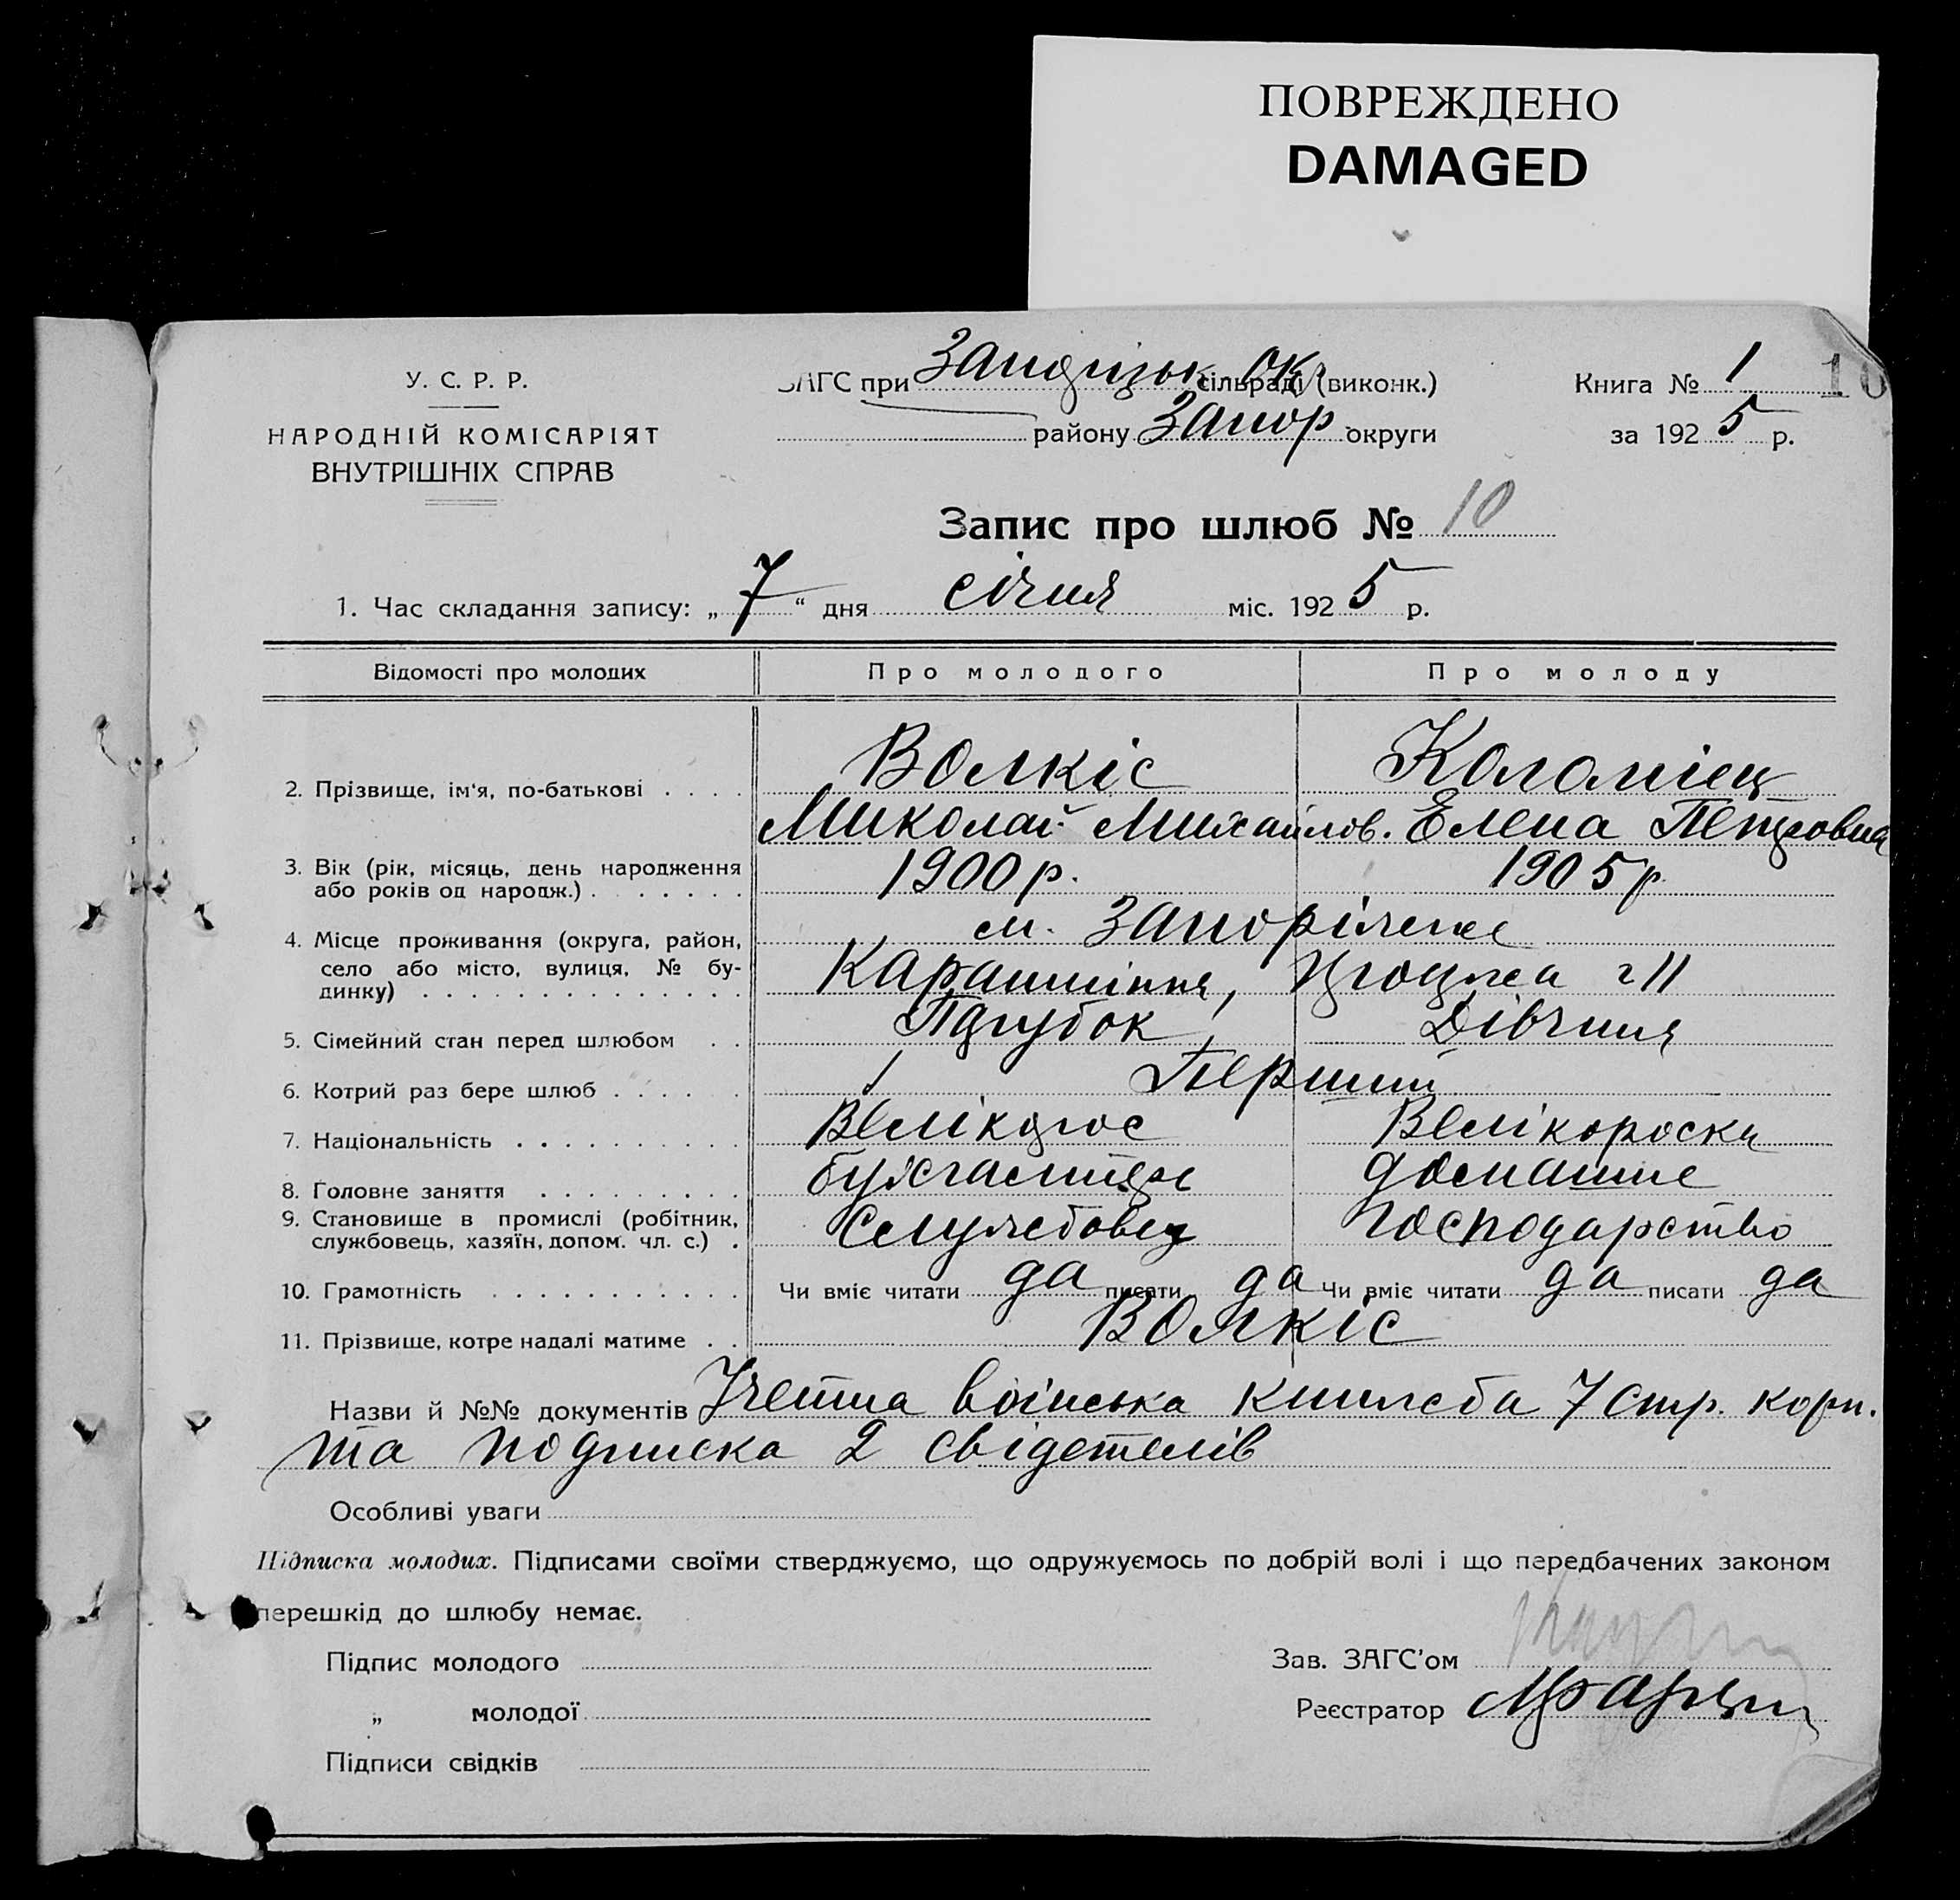 ПОВРЕЖДЕНО
DAMAGED
У. С. Р. Р.
НАРОДНІЙ КОМІСАРІЯТ
ВНУТРІШНІХ СПРАВ
ЗАГС при сільраді (виконк.)
району Запор округи
Книга № 1
10
за 1925 р.
Запис про шлюб № 10
1. Час складання запису: „7“ дня січня міс. 1925 р.
Відомості про молодих
Про молодого
Про молоду
2. Прізвище, ім'я, по-батькові
Волкіс
Миколай Михайлов.
Коломіец
Елена Петровна
3. Вік (рік, місяць, день народження
або років од народж.)
1900 р.
1905 р
4. Місце проживання (округа, район,
село або місто, вулиця, № бу-
динку)
м. Запоріжже
11
5. Сімейний стан перед шлюбом
Парубок
Дівчина
6. Котрий раз бере шлюб
Перший
7. Національність
Велікорос
Велікороска
8. Головне заняття
бухгалтер
домашне
9. Становище в промислі (робітник,
службовець, хазяїн, допом. чл. с.)
Службовец
господарство
10. Грамотність
Чи вміє читати да писати да
Чи вміє читати да писати да
11. Прізвище, котре надалі матиме
Волкіс
Назви й №№ документів Учетна воінська книжка 7 стр. корп.
та подписка 2 свідетелів
Особливі уваги
Підписка молодих. Підписами своїми стверджуємо, що одружуємось по добрій волі і що передбачених законом
перешкід до шлюбу немає.
Підпис молодого
„ молодої
Підписи свідків
Зав. ЗАГС'ом
Реєстратор